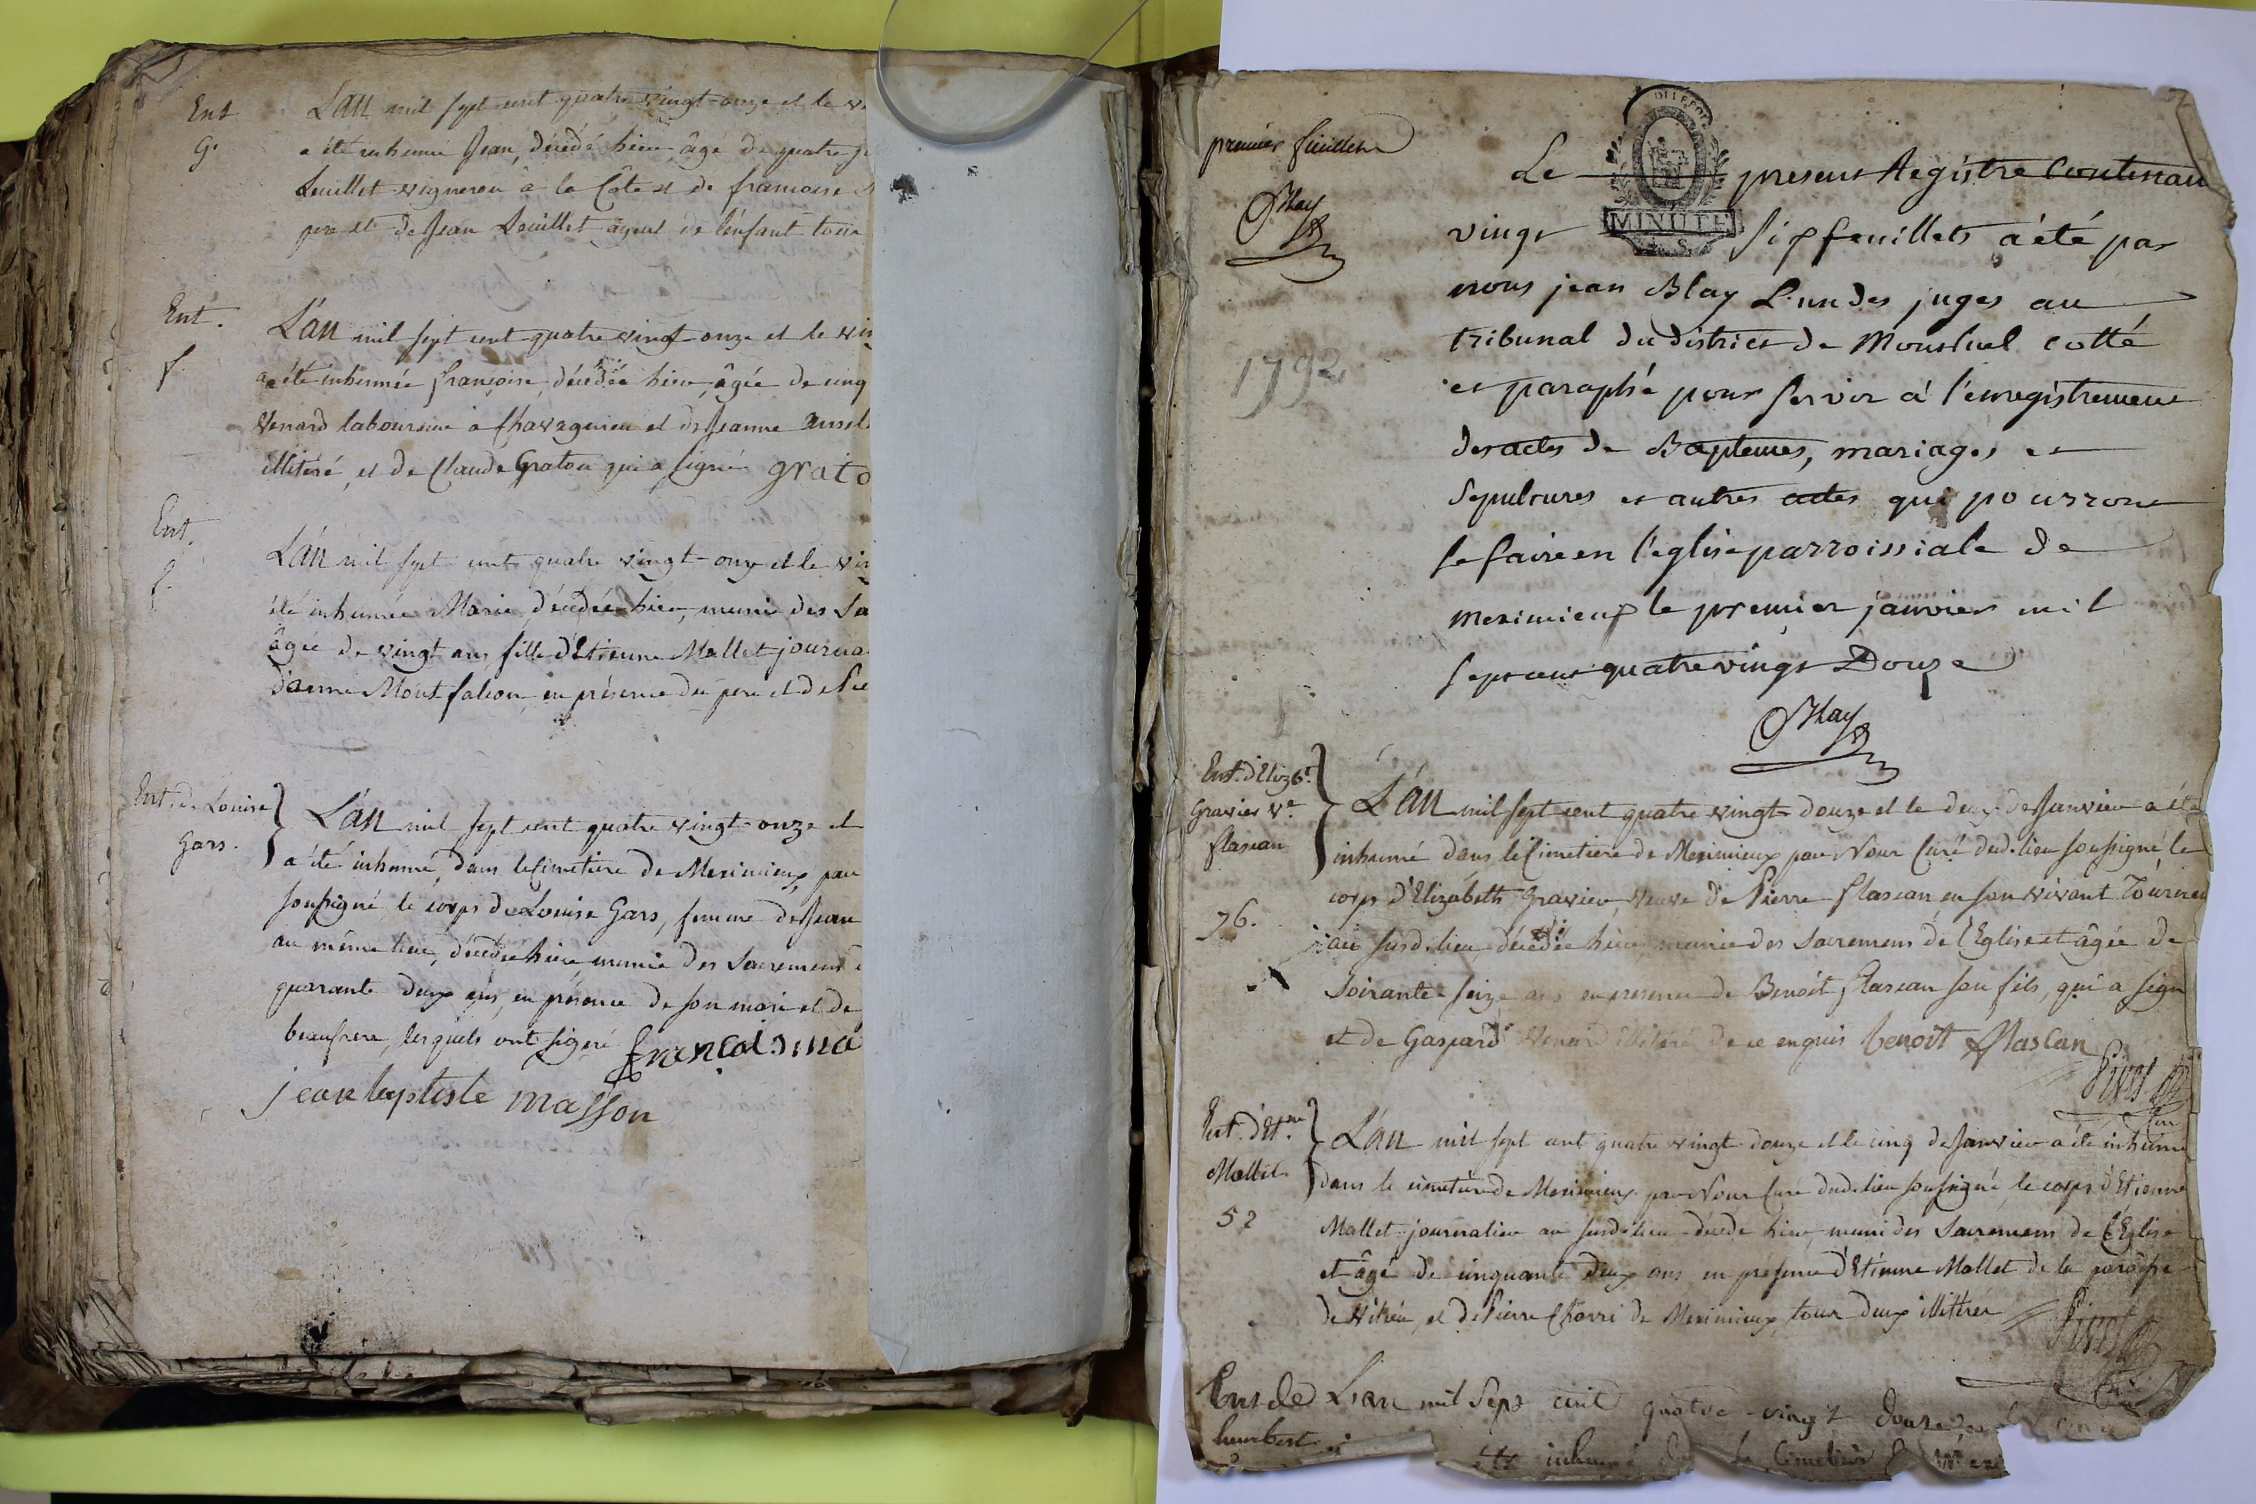 Ent.
G.
L'an mil sept cent quatre vingt-onze et le
a été inhumé Jean, décédé hier, âgé de quatre
Leuillet vigneron à la Côte et de francoise
pere et de Jean Leuillet ayeul de l'enfant tous
Ent.
f.
L'an mil sept cent quatre vingt-onze et le vin
a été inhumée françoise, décédée hier, âgée de cinq
Venard laboureur à Chavagnieu et de Jeanne
illitéré, et de Claude Graton qui a signé grato
Ent.
f.
L'an mil sept cent quatre vingt-onze et le vin
été inhumée Marie, décédée hier, munie des Sa
âgée de vingt ans, fille d'Etienne Mallet journa
d'anne Montfalcon, en présence du pere et de
Ent. de Louise
Gars.
L'an mil sept cent quatre vingt-onze et
a été inhumé, dans le Cimetiere de Meximieux, par
soussigné le corps de Louise Gars, femme de Jean
au même lieu, décédée hier, munie des Sacremens
quarante deux ans, en présence de son mari et de
beaufrere, lesquels ont signé francois ma
jean baptiste masson
premier feuillet
Blay
1792
Le present Registre Contenant
vingt MINUTE six feuillets a été par
nous jean Blay L'un des juges au
tribunal du district de Montluel cotté
et paraphé pour servir à l'enregistrement
des actes de Baptemes, mariages et
Sepultures et autres actes qui pourront
se faire en l'eglise parroissiale de
meximieux le premier janvier mil
sept cent quatre vingt Douze
Blay
Ent. d'Elizbt.
Gravier Ve.
flascan
76.
L'an mil sept cent quatre vingt-douze et le deux de Janvier a été
inhumé dans le Cimetiere de Meximieux par Nous Curé dud. lieu soussigné, le
corps d'Elizabeth Gravier, veuve de Pierre flascan en son vivant
au susd. lieu, décédée hier, munie des Sacremens de l'Eglise et âgée de
Soixante-seize ans en presence de Benoit flascan son fils, qui a signé
et de Gaspard Venard illitéré de ce enquis benoît flascan
Ent. d'Etne.
Mallet.
52
L'an mil sept cent quatre vingt-douze et le cinq de Janvier a été inhumé
dans le cimetiere de Meximieux par Nous Curé dud. lieu soussigné le corps d'Etienne
Mallet journalier au susd. lieu décédé hier, muni des Sacremens de l'Eglise
et âgé de cinquante deux ans, en présence d'Etienne Mallet de la paroisse
de et de Pierre Charri de Meximieux, tous deux illittrés
Ent de
humbert
L'an mil Sept cent quatre-vingt douze
été inhumé le Cimetière